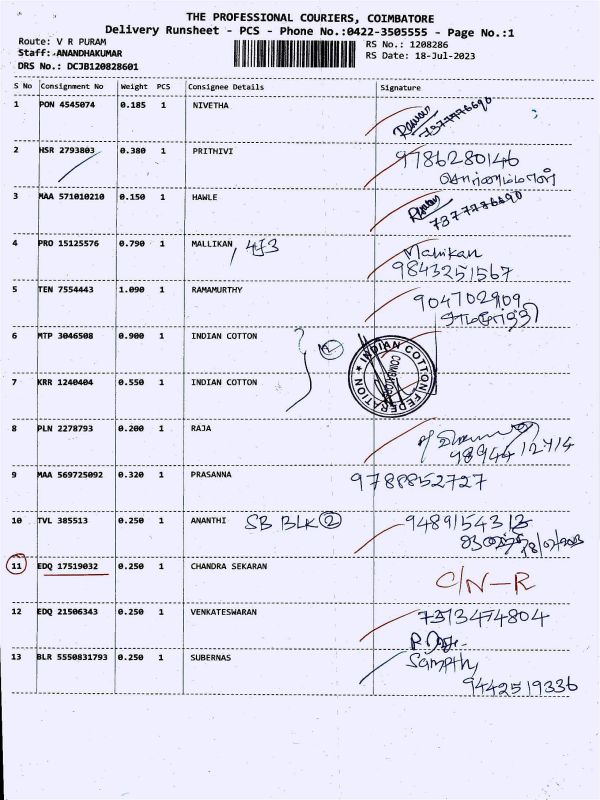 THE PROFESSIONAL COURIERS, COIMBATORE
Delivery Runsheet - PCS - Phone No.:0422-3505555 - Page No.:1
Route: V R PURAM
RS No.: 1208286
Staff: ANANDHAKUMAR
RS Date: 18-Jul-2023
DRS No.: DCJB120828601
S No Consignment No Weight PCS Consignee Details Signature
1 PON 4545074 0.185 1 NIVETHA 7377776690
2 HSR 2793803 0.380 1 PRITHIVI 9786280146
3 MAA 571010210 0.150 1 HAWLE 7377776690
4 PRO 15125576 0.790 1 MALLIKAN, 4J3 Mallikan
9843251567
5 TEN 7554443 1.090 1 RAMAMURTHY 904702909
6 MTP 3046508 0.900 1 INDIAN COTTON
INDIAN COTTON FEDERATION
COIMBATORE
7 KRR 1240404 0.550 1 INDIAN COTTON
8 PLN 2278793 0.200 1 RAJA
9 MAA 569725092 0.320 1 PRASANNA 9788852727
10 TVL 385513 0.250 1 ANANTHI SB BLK 2 9489154313
11 EDQ 17519032 0.250 1 CHANDRA SEKARAN C/N-R
12 EDQ 21506343 0.250 1 VENKATESWARAN 7313474804
13 BLR 5550831793 0.250 1 SUBERNAS Sampth
9442519336